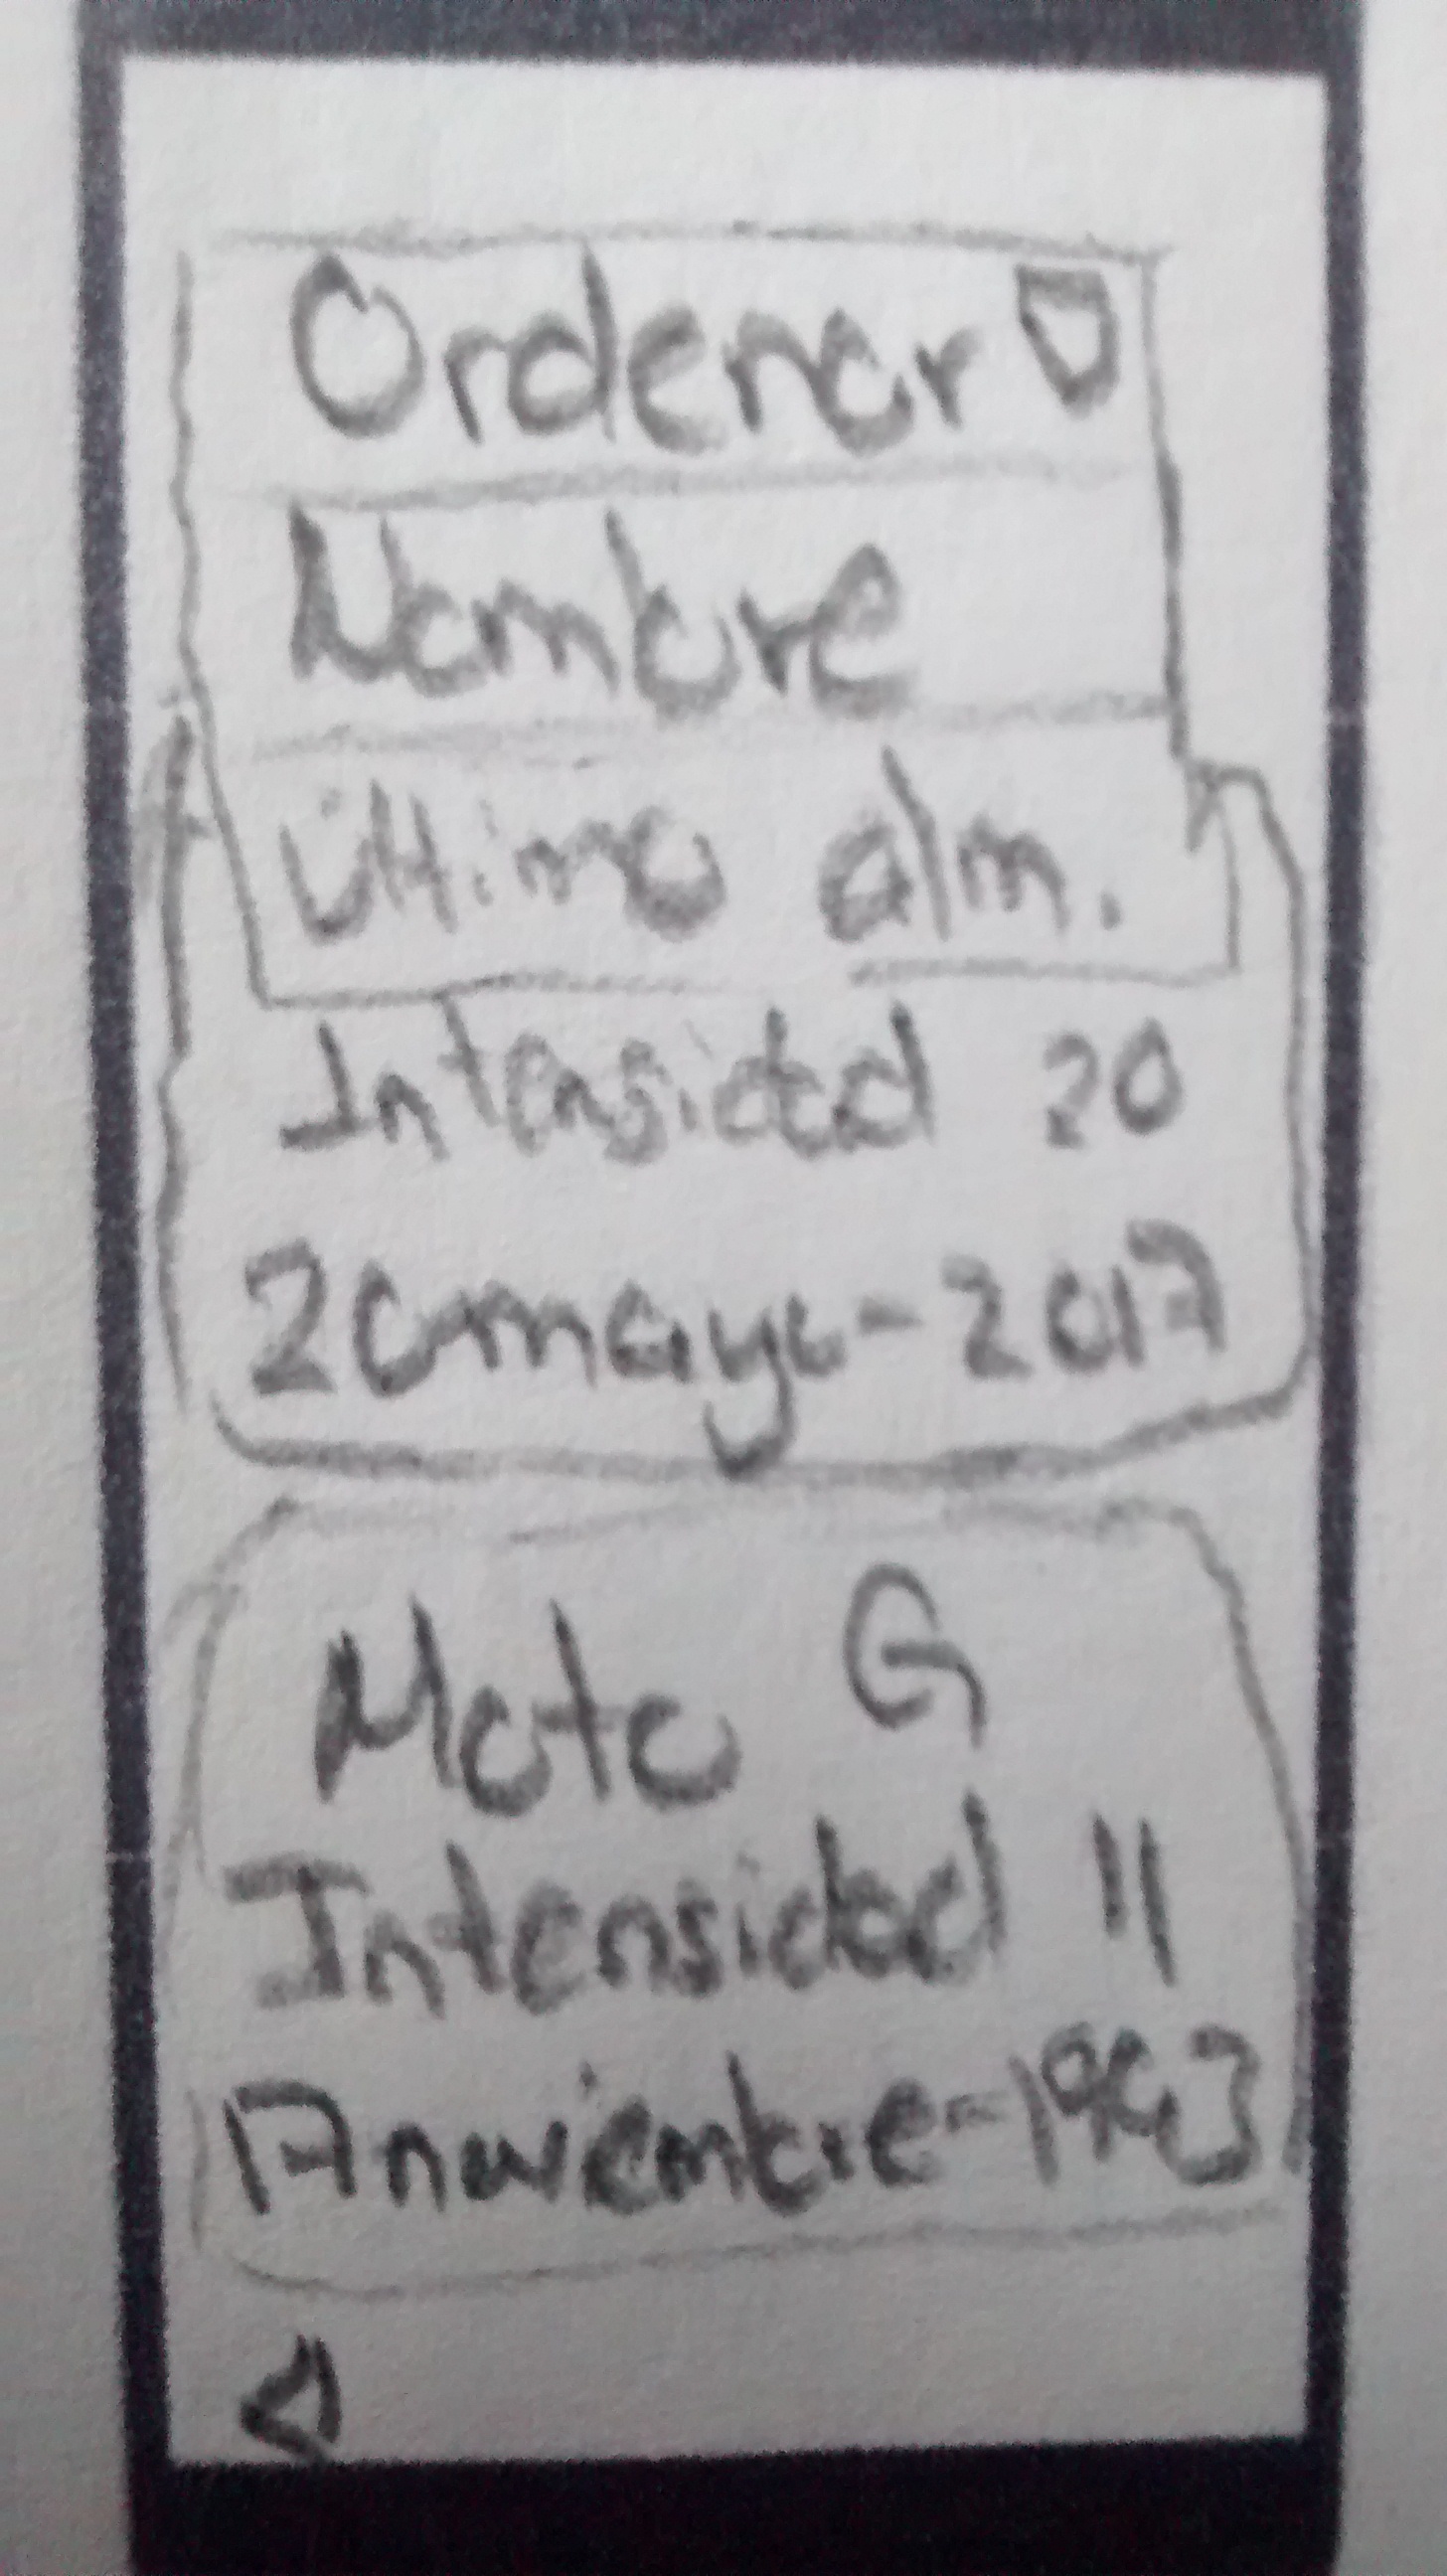 Ordenar
Nombre
Ultimo alm.
Intensidad 20
20mayo-2017
Moto G
Intensidad 11
17noviembre-1993